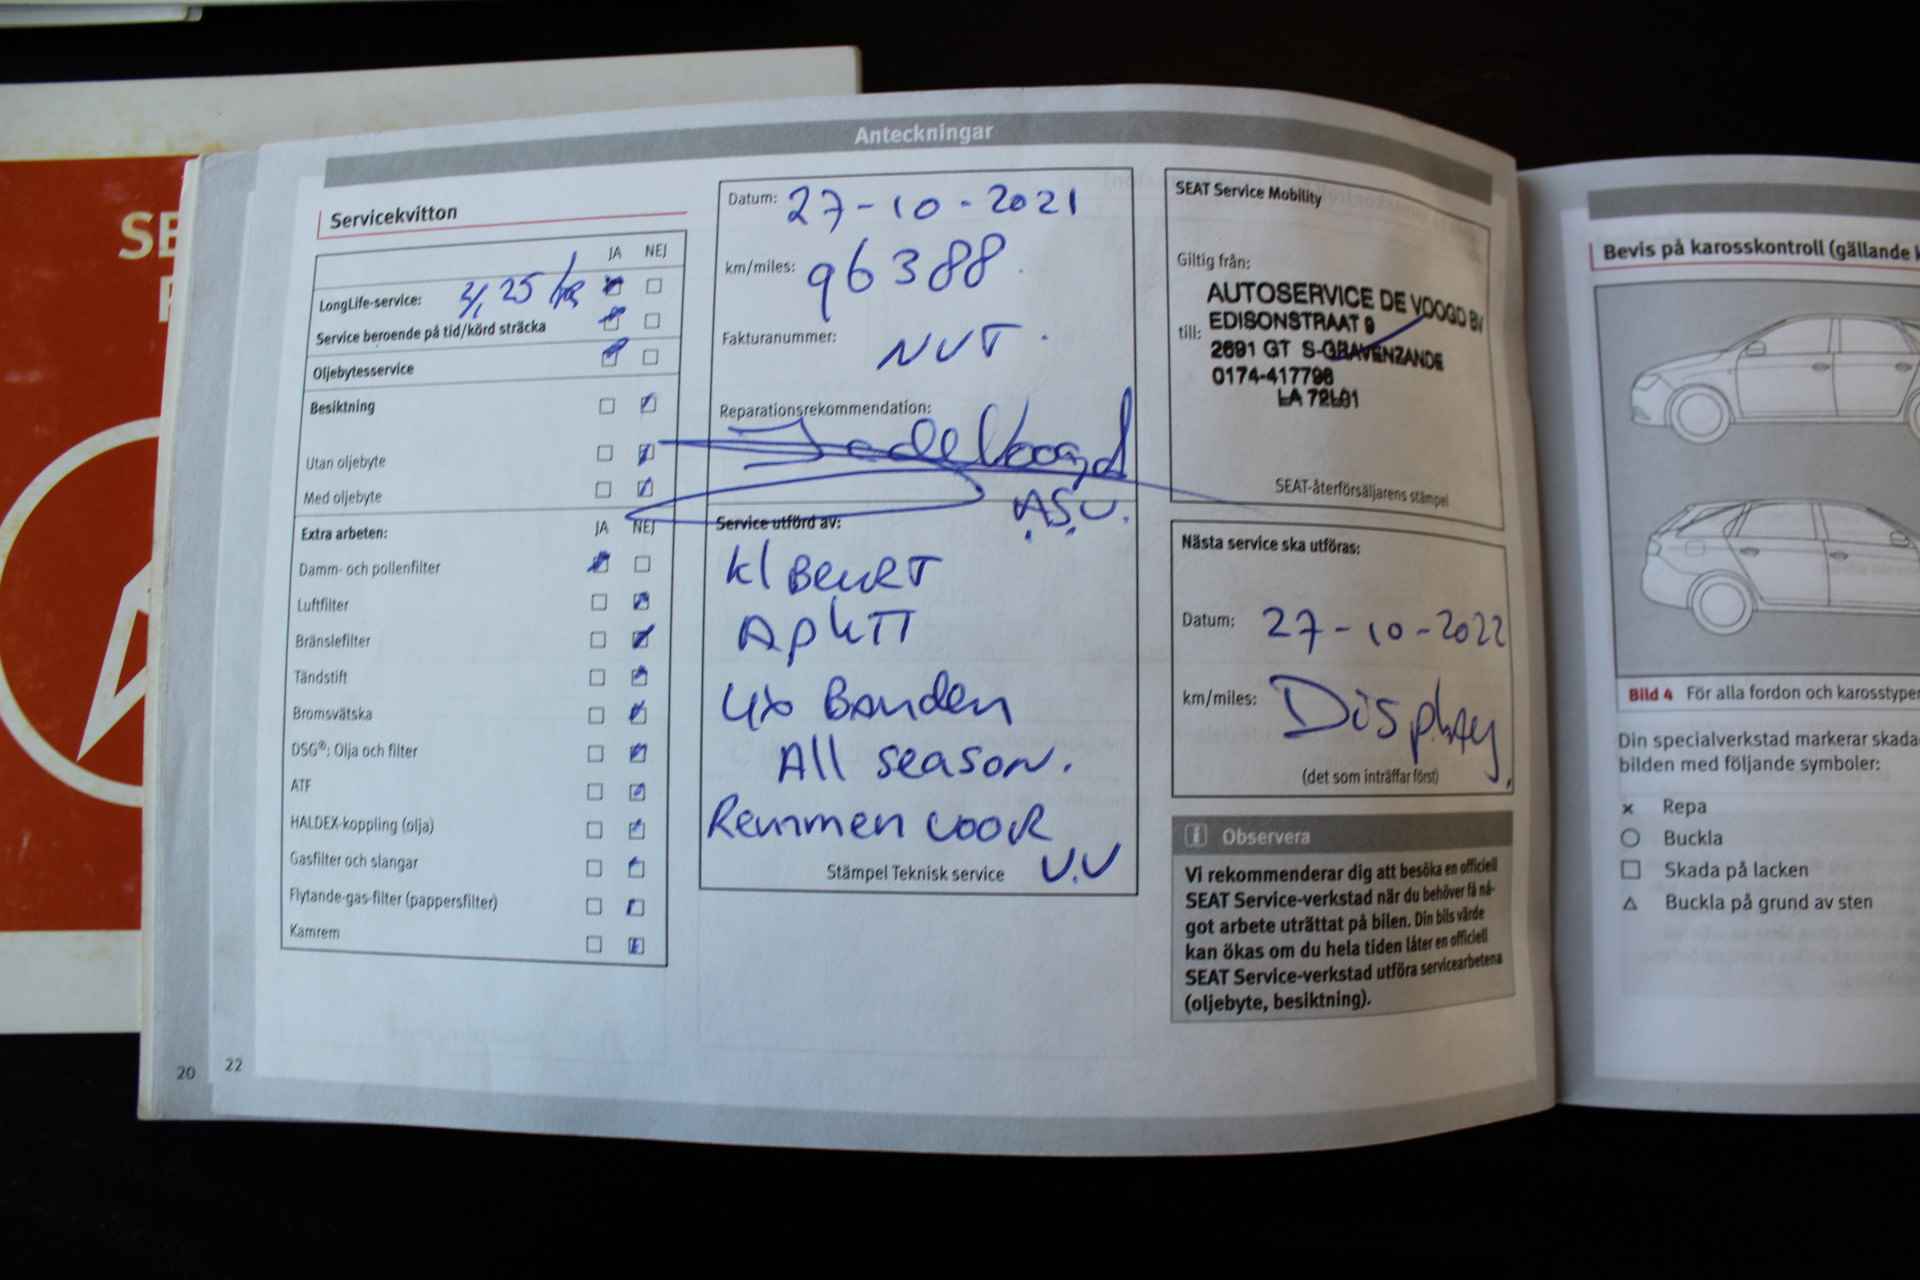 SE
Anteckningar
Servicekvitton
JA NEJ
LongLife-service:
Service beroende på tid/körd sträcka
Oljebytesservice
Besiktning
Utan oljebyte
Med oljebyte
Extra arbeten: JA NEJ
Damm- och pollenfilter
Luftfilter
Bränslefilter
Tändstift
Bromsvätska
DSG®: Olja och filter
ATF
HALDEX-koppling (olja)
Gasfilter och slangar
Flytande-gas-filter (pappersfilter)
Kamrem
20 22
Datum: 27-10-2021
km/miles: 96388
Fakturanummer: NVT.
Reparationsrekommendation:
A.S.V.
Service utförd av:
kl BEURT
APK TT
4x Banden
All season.
Remmen VOOR
V.V
Stämpel Teknisk service
SEAT Service Mobility
Giltig från:
AUTOSERVICE DE VOOGD BV
EDISONSTRAAT 9
till:
2691 GT S-GRAVENZANDE
0174-417798
SEAT-återförsäljarens stämpel
Nästa service ska utföras:
Datum: 27-10-2022
km/miles: Display
(det som inträffar först)
Observera
Vi rekommenderar dig att besöka en officiell
SEAT Service-verkstad när du behöver få nå-
got arbete uträttat på bilen. Din bils värde
kan ökas om du hela tiden låter en officiell
SEAT Service-verkstad utföra servicearbetena
(oljebyte, besiktning).
Bevis på karosskontroll (gällande
Bild 4 För alla fordon och karosstyper
Din specialverkstad markerar skada
bilden med följande symboler:
× Repa
○ Buckla
□ Skada på lacken
△ Buckla på grund av sten